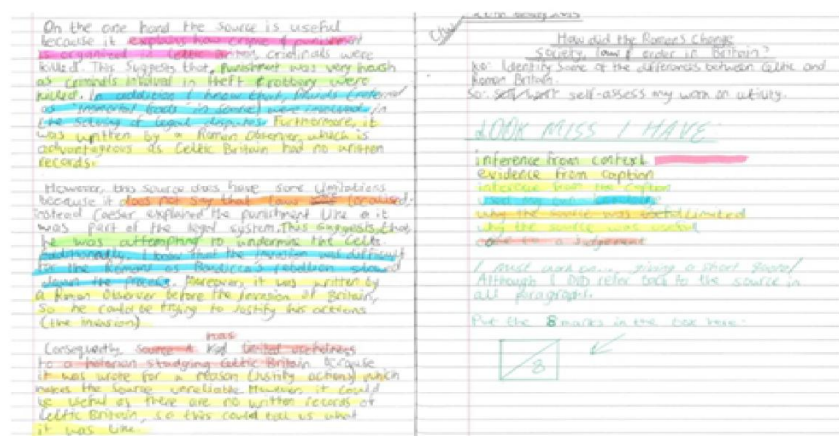 On the one hand the source is useful
because it explains how crime & punishment
is organised in Celtic criminals were
killed. This suggests that, punishment was very harsh
as criminals involved in theft & robbery were
killed. In addition I know that, Druids (referred
as "immortal Gods" in source) were involved in
the solving of legal disputes. Furthermore, it
was written by a Roman observer, which is
advantageous as Celtic Britain had no written
records.
However, this source does have some limitations
because it does not say that laws localised,
instead Caesar explained the punishment like it
was part of the legal system. This suggests that,
he was attempting to undermine the Celts.
Additionally, I know that the invasion was difficult
for the Romans as Boudicca's rebellion slowed
down the process. Moreover, it was written by
a Roman observer before the invasion of Britain,
so he could be trying to justify his actions
(the invasion).
has
Consequently, source limited usefulness
to a historian studying Celtic Britain because
it was wrote for a reason (justify actions) which
makes the source unreliable. However, it could
be useful as there are no written records of
Celtic Britain, so this could tell us what
it was like.
How did the Romans change
society, law & order in Britain?
Identify some of the differences between Celtic and
Roman Britain.
So: self-assess my work on utility.
LOOK MISS I HAVE:
inference from context
evidence from caption
inference from the caption
used my own
why the source was limited
why the source was useful
to a judgement
I must work on... giving a short
Although I DID refer back to the source in
all paragraphs.
Put the 8 marks in the box here:
8